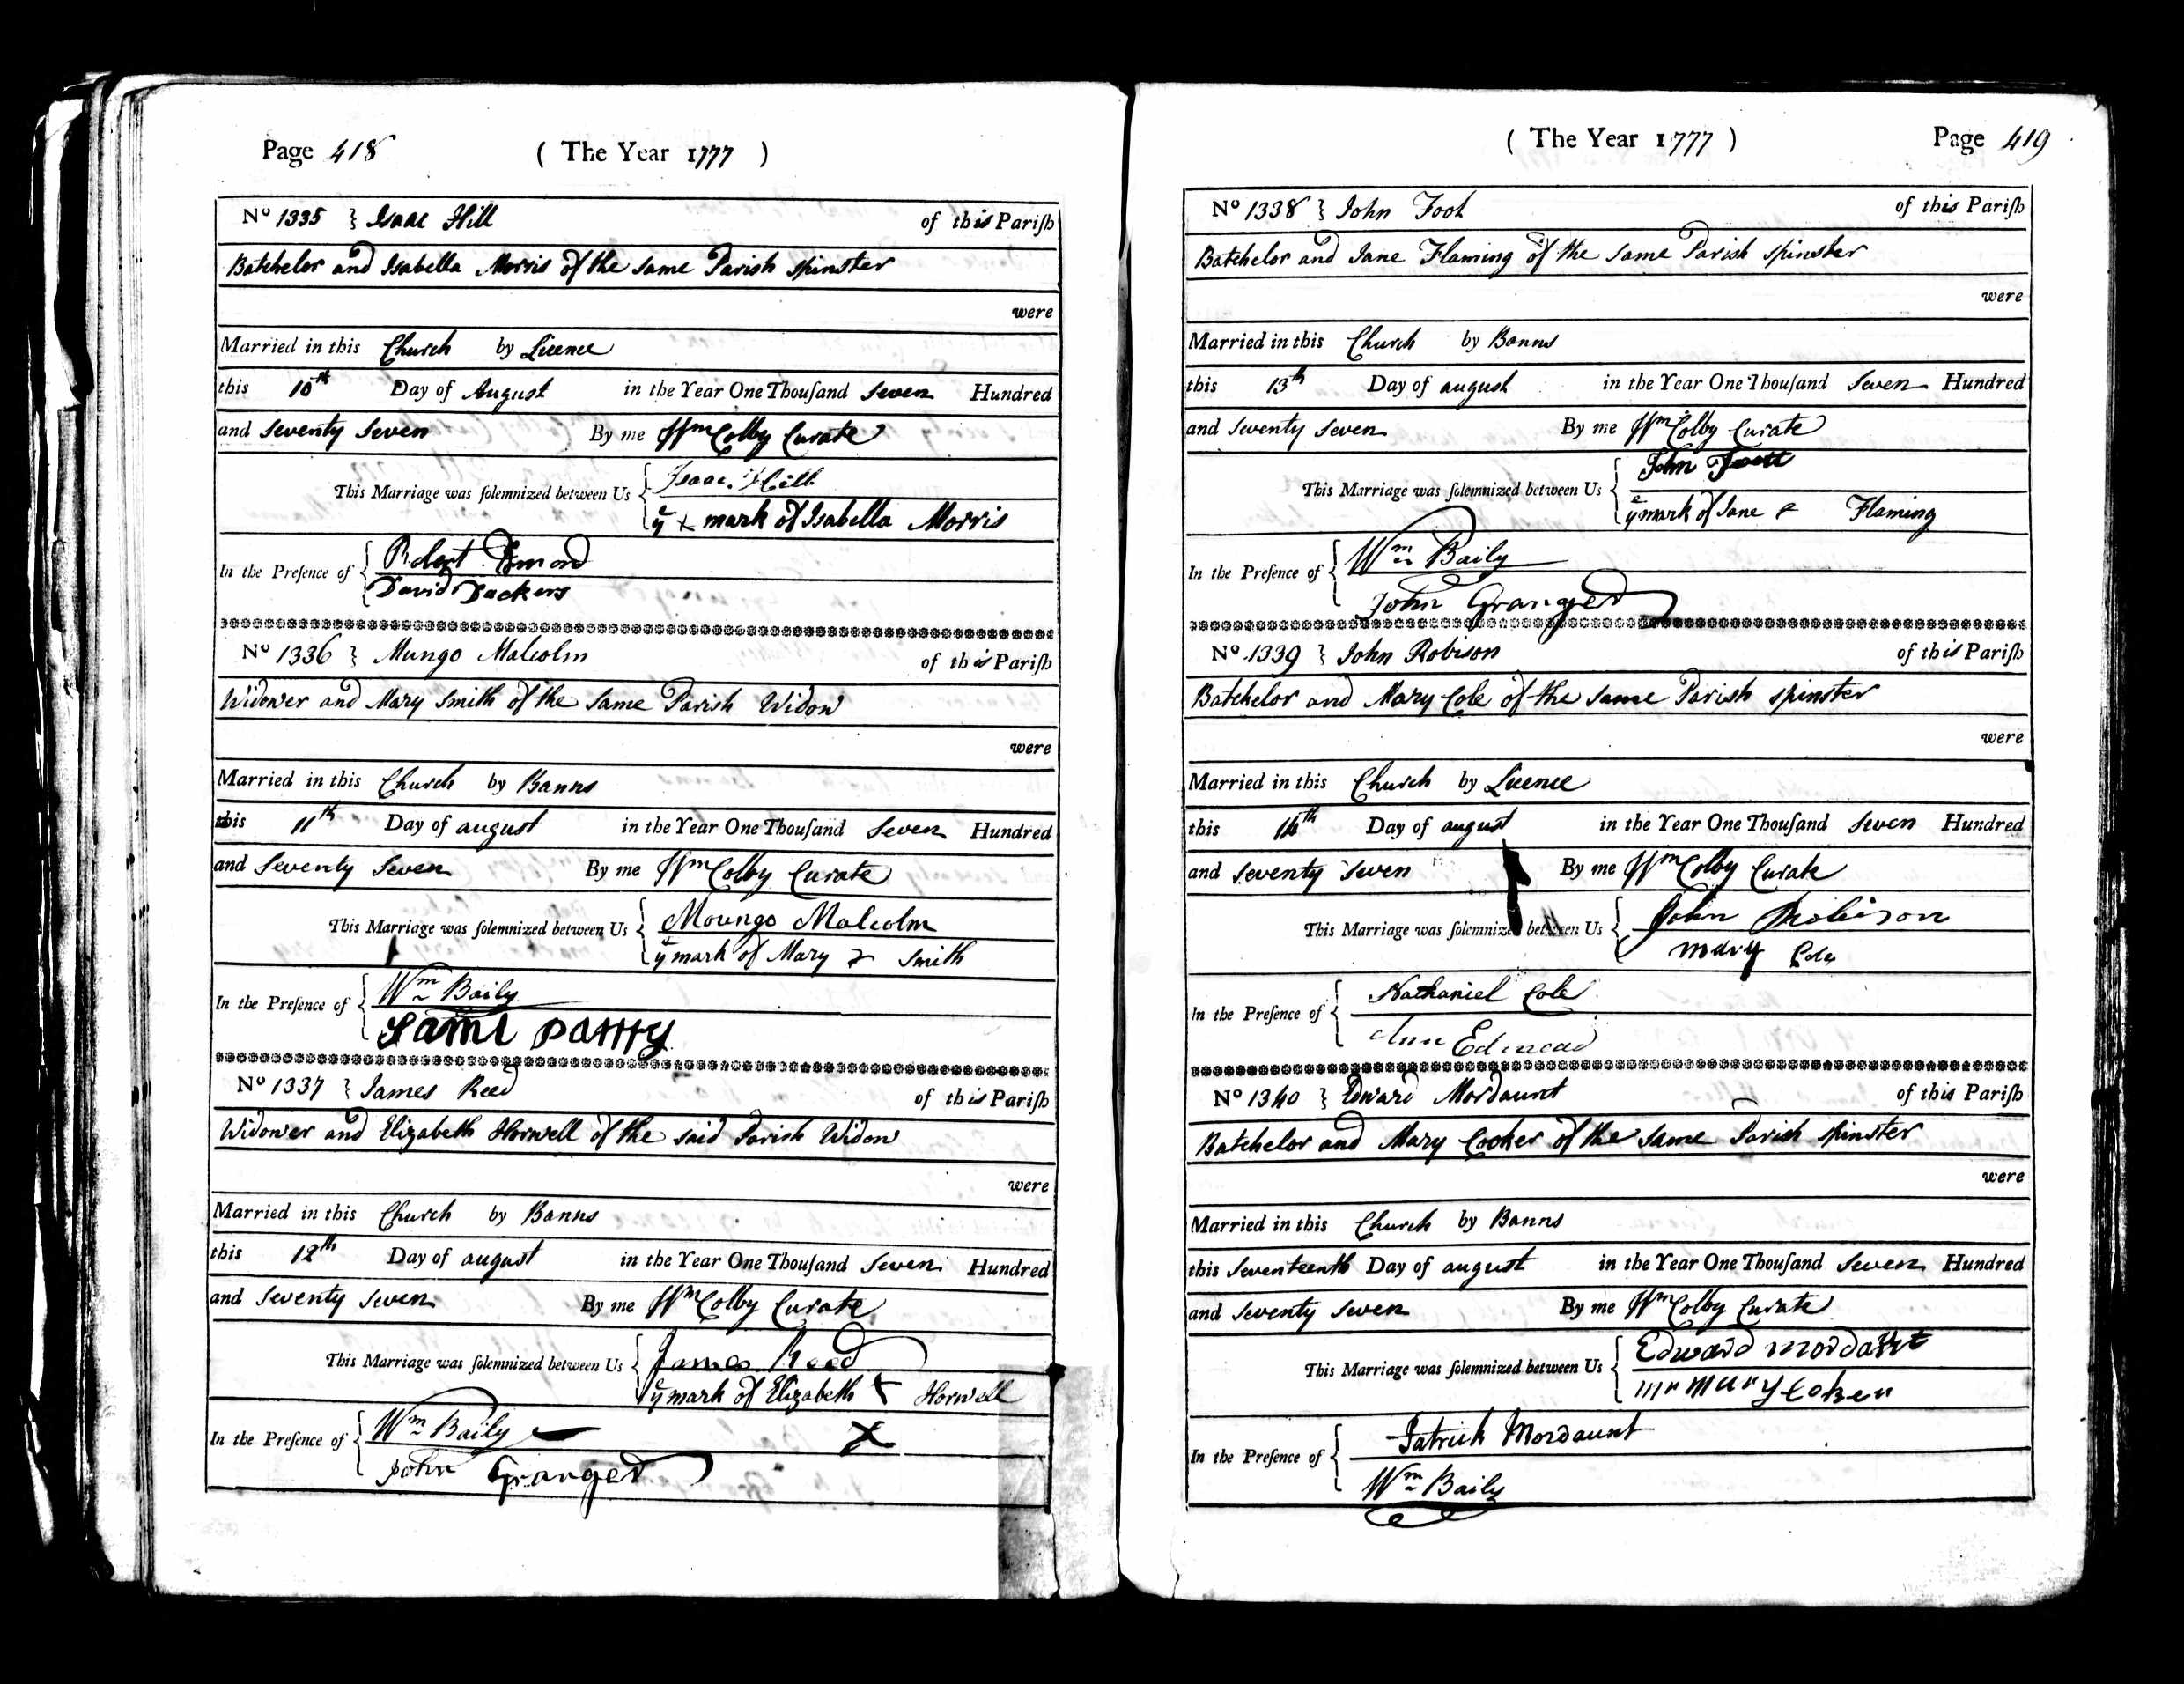 Page 418 ( The Year 1777 )
No 1335 } Isaac Hill of this Pariſh
Batchelor and Isabella Morris of the same Parish Spinster
were
Married in this Church by Licence
this 10th Day of August in the Year One Thouſand Seven Hundred
and Seventy Seven By me Wm Colby Curate
This Marriage was ſolemnized between Us { Isaac Hill
ye x mark of Isabella Morris
In the Preſence of { Robert
David Dackers
No 1336 } Mungo Malcolm of this Pariſh
Widower and Mary Smith of the same Parish Widow
were
Married in this Church by Banns
this 11th Day of august in the Year One Thouſand Seven Hundred
and Seventy Seven By me Wm Colby Curate
This Marriage was ſolemnized between Us { Moungo Malcolm
ye mark of Mary Smith
In the Preſence of { Wm Baily
No 1337 } James Reed of this Pariſh
Widower and Elizabeth Horwell of the said Parish Widow
were
Married in this Church by Banns
this 12th Day of august in the Year One Thouſand Seven Hundred
and Seventy Seven By me Wm Colby Curate
This Marriage was ſolemnized between Us { James Reed
ye mark of Elizabeth + Horwell
In the Preſence of { Wm Baily X
John Granger
( The Year 1777 ) Page 419
No 1338 } John Foot of this Pariſh
Batchelor and Jane Flaming of the same Parish Spinster
were
Married in this Church by Banns
this 13th Day of august in the Year One Thouſand Seven Hundred
and Seventy Seven By me Wm Colby Curate
This Marriage was ſolemnized between Us { John
ye mark of Jane Flaming
In the Preſence of { Wm Baily
John Granger
No 1339 } John Robison of this Pariſh
Batchelor and Mary Cole of the same Parish Spinster
were
Married in this Church by Licence
this 14th Day of august in the Year One Thouſand Seven Hundred
and Seventy Seven By me Wm Colby Curate
This Marriage was ſolemnized between Us { John Robison
mary Cole
In the Preſence of { Nathaniel Cole
Ann
No 1340 } Edward Mordaunt of this Pariſh
Batchelor and Mary Cooker of the same Parish Spinster
were
Married in this Church by Banns
this Seventeenth Day of august in the Year One Thouſand Seven Hundred
and Seventy Seven By me Wm Colby Curate
This Marriage was ſolemnized between Us { Edward
mary
In the Preſence of { Patrick Mordaunt
Wm Baily